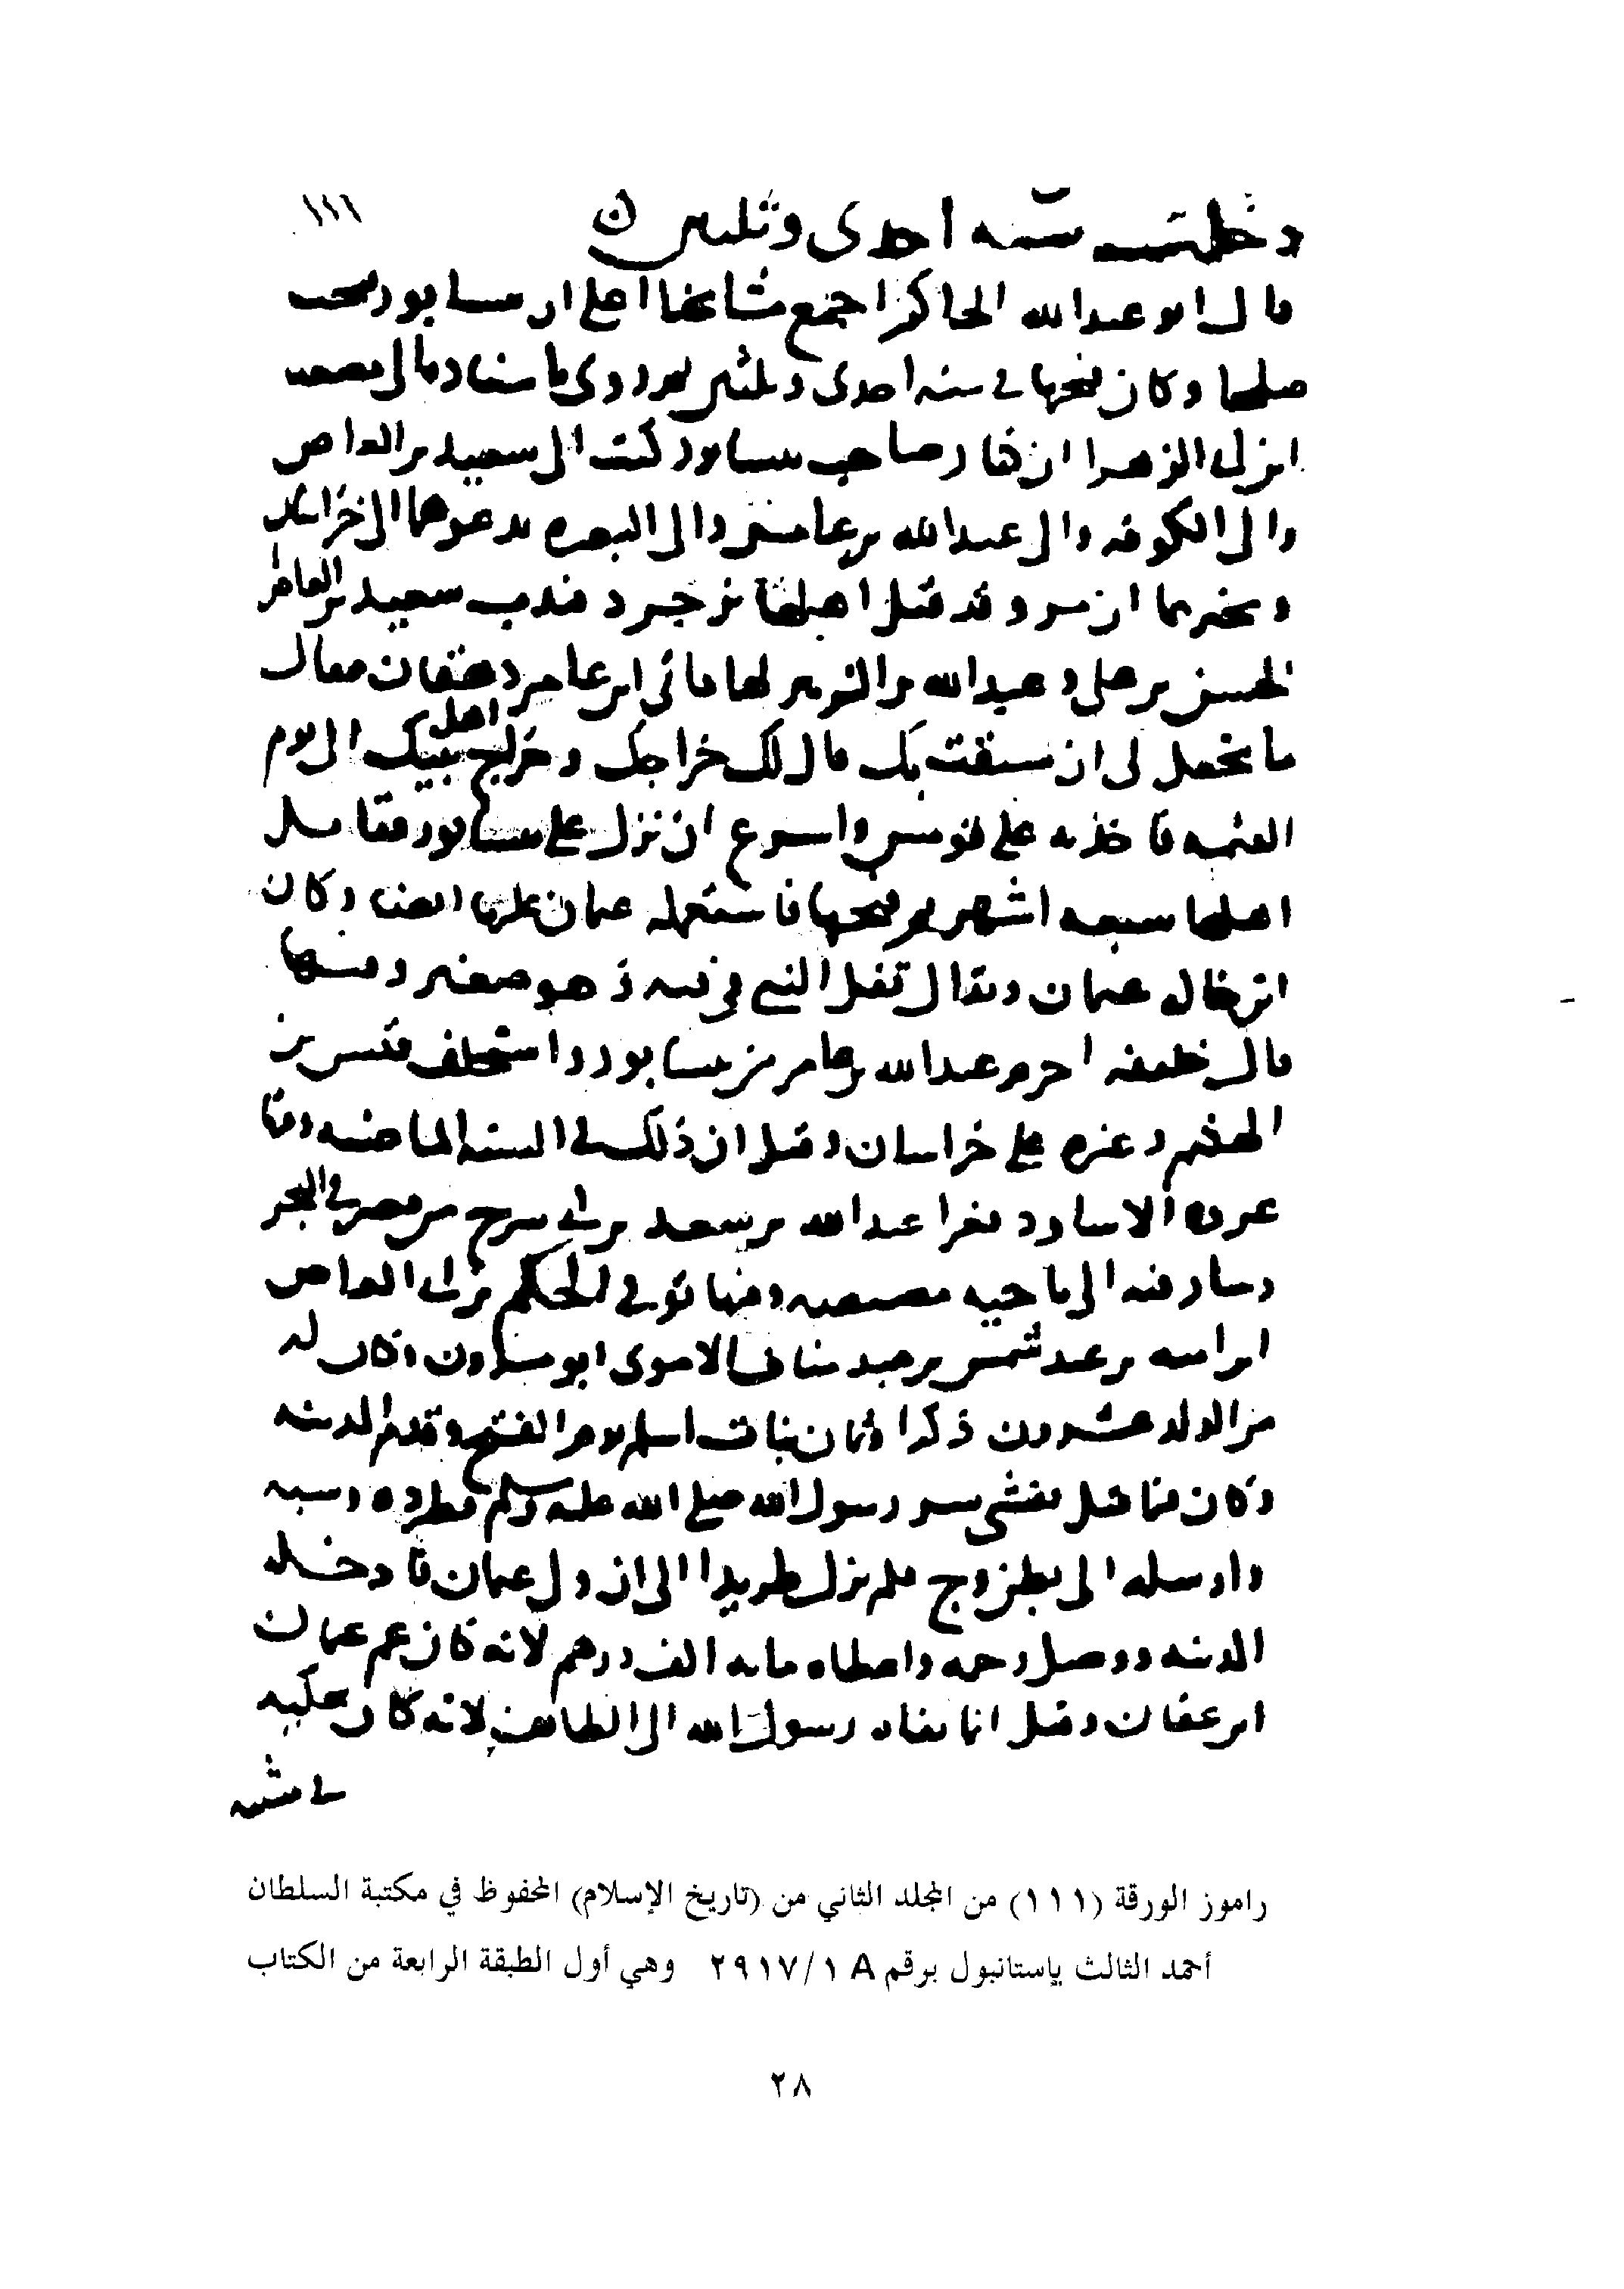 ١١١
دخلت سنة احدى وثلثين
قال ابو عبد الله الحاكم اجمع مشايخنا على ان نيسابور فتحت
صلحا وكان فتحها في سنة احدى وثلثين ثم روى باسناده الى مصعب
ابن ابي الزهرا ان كنار صاحب نيسابور كتب الى سعيد بن العاص
والى الكوفه والى عبد الله بن عامر والى البصره يدعوهما الى خراسان
ويخبرهما ان مرو قد قتل اهلها يزدجرد فندب سعيد بن العاص
الحسن بن على وعبد الله بن الزبير لها فاتى ابن عامر دهقان فقال
ما تجعل لى ان سبقت بك قال لك خراجك وخراج اهل بيتك الى يوم
القيمه فاخذ به على قومس واسرع ان نزل على نيسابور فقاتل
اهلها سبعه اشهر ثم فتحها فاستعمله عثمان عليها ايضا وكان
ابن خال عثمان ويقال تفل النبي في فيه وهو صغير وفيها
قال خليفه احرم عبد الله بن عامر من نيسابور واستخلف قيس بن
الهيثم وغيره على خراسان وقيل ان ذلك في السنه الماضيه وفيها
غزوه الاساود فغزا عبد الله بن سعد بن ابي سرح من مصر في البحر
وسار فيه الى ناحيه مصيصه وفيها توفي الحكم بن ابي العاص
ابن اميه بن عبد شمس بن عبد مناف الاموى ابو مروان وكان له
من الولد عشرون ذكرا وثمان بنات اسلم يوم الفتح وقدم المدينه
وكان فيما قيل يفشى سر رسول الله صلى الله عليه وسلم فطرده وسبه
وارسله الى بطن وج فلم يزل طريدا الى ان ولى عثمان فادخله
المدينه ووصل رحمه واعطاه مايه الف درهم لانه كان عم عثمان
ابن عفان وقيل انما نفاه رسول الله الى الطايف لانه كان يحكيه
في مشيه
راموز الورقة (١١١) من المجلد الثاني من (تاريخ الإسلام) المحفوظ في مكتبة السلطان
أحمد الثالث بإستانبول برقم A ٢٩١٧/١ وهي أول الطبقة الرابعة من الكتاب
٢٨